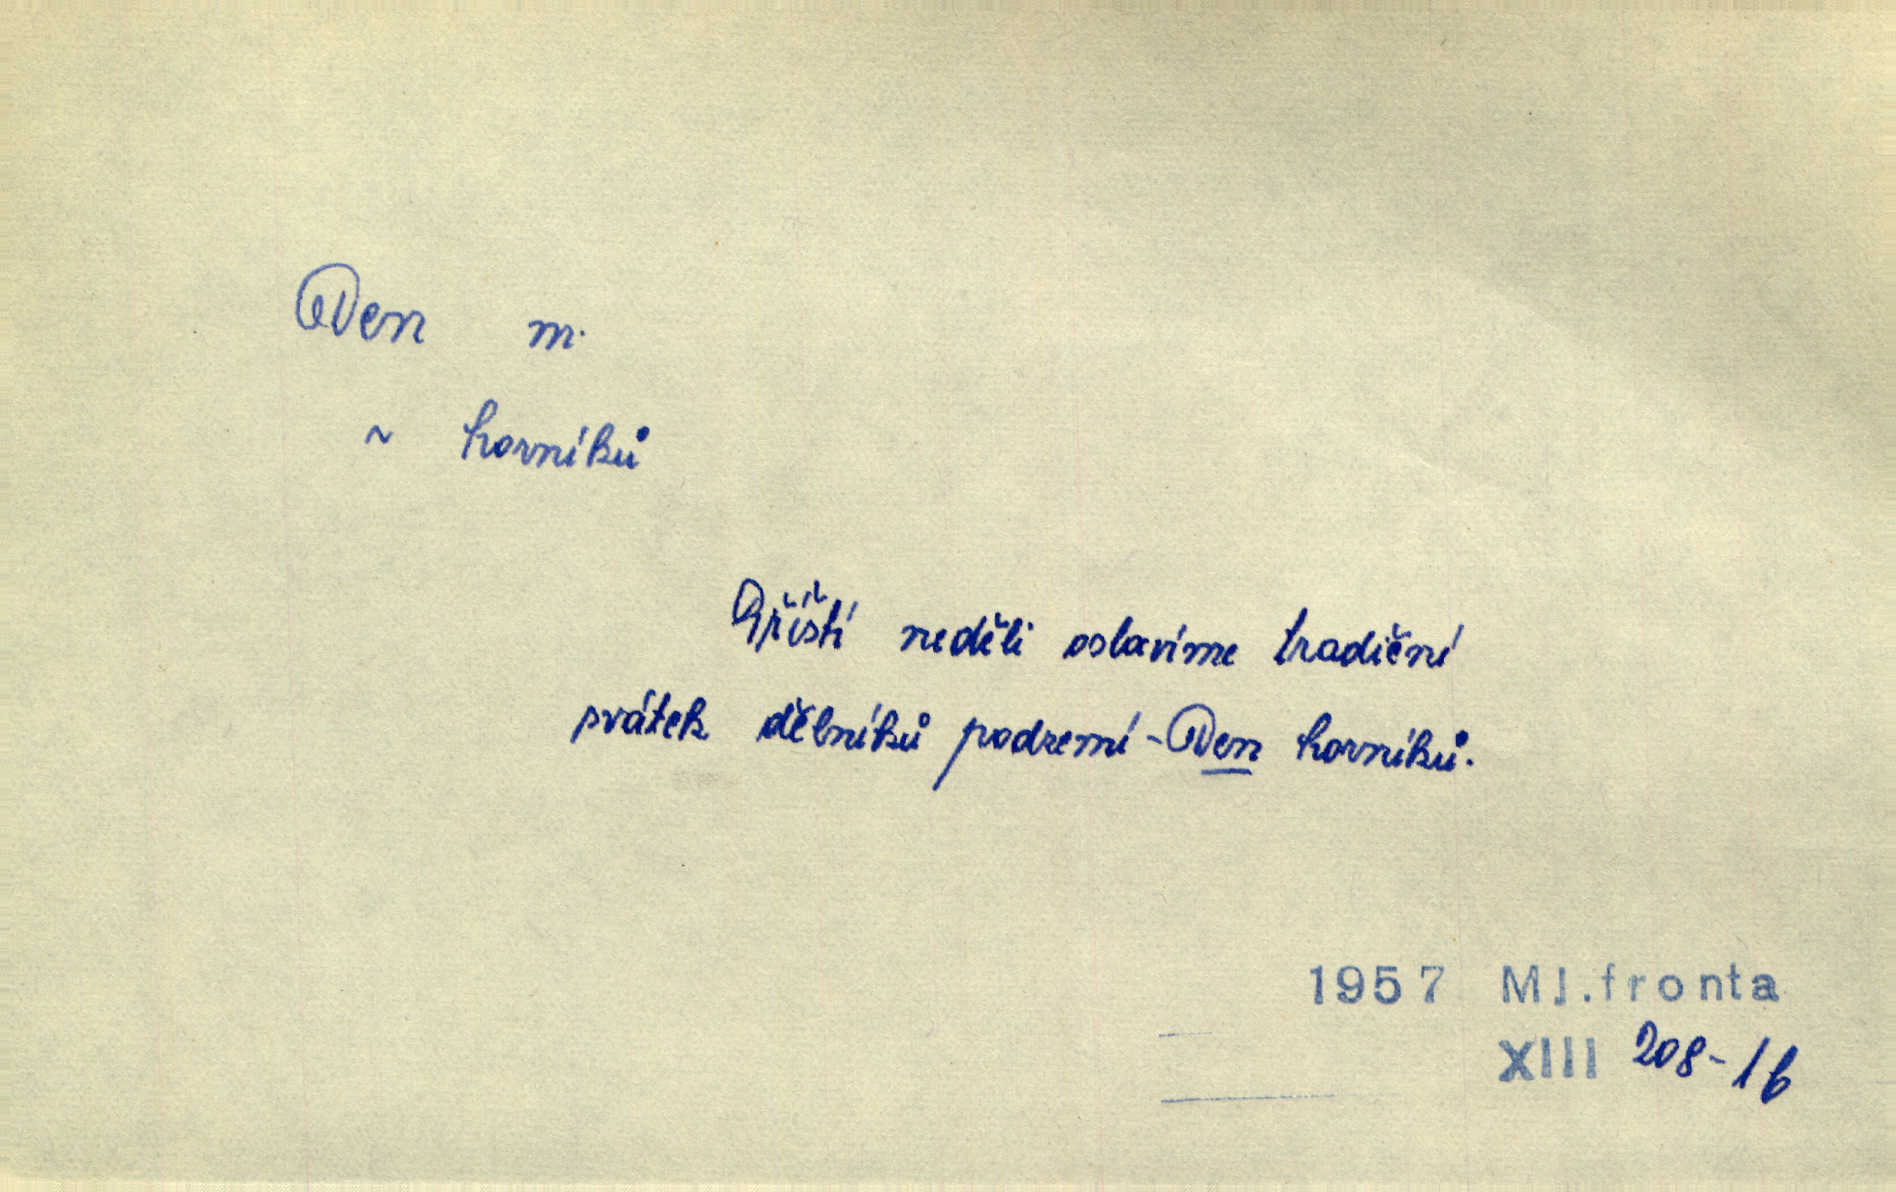 Den m.
~ horníků
Příští neděli oslavíme tradiční
svátek dělníků podzemí - Den horníků.
1957 Ml.fronta
XIII 208-1b